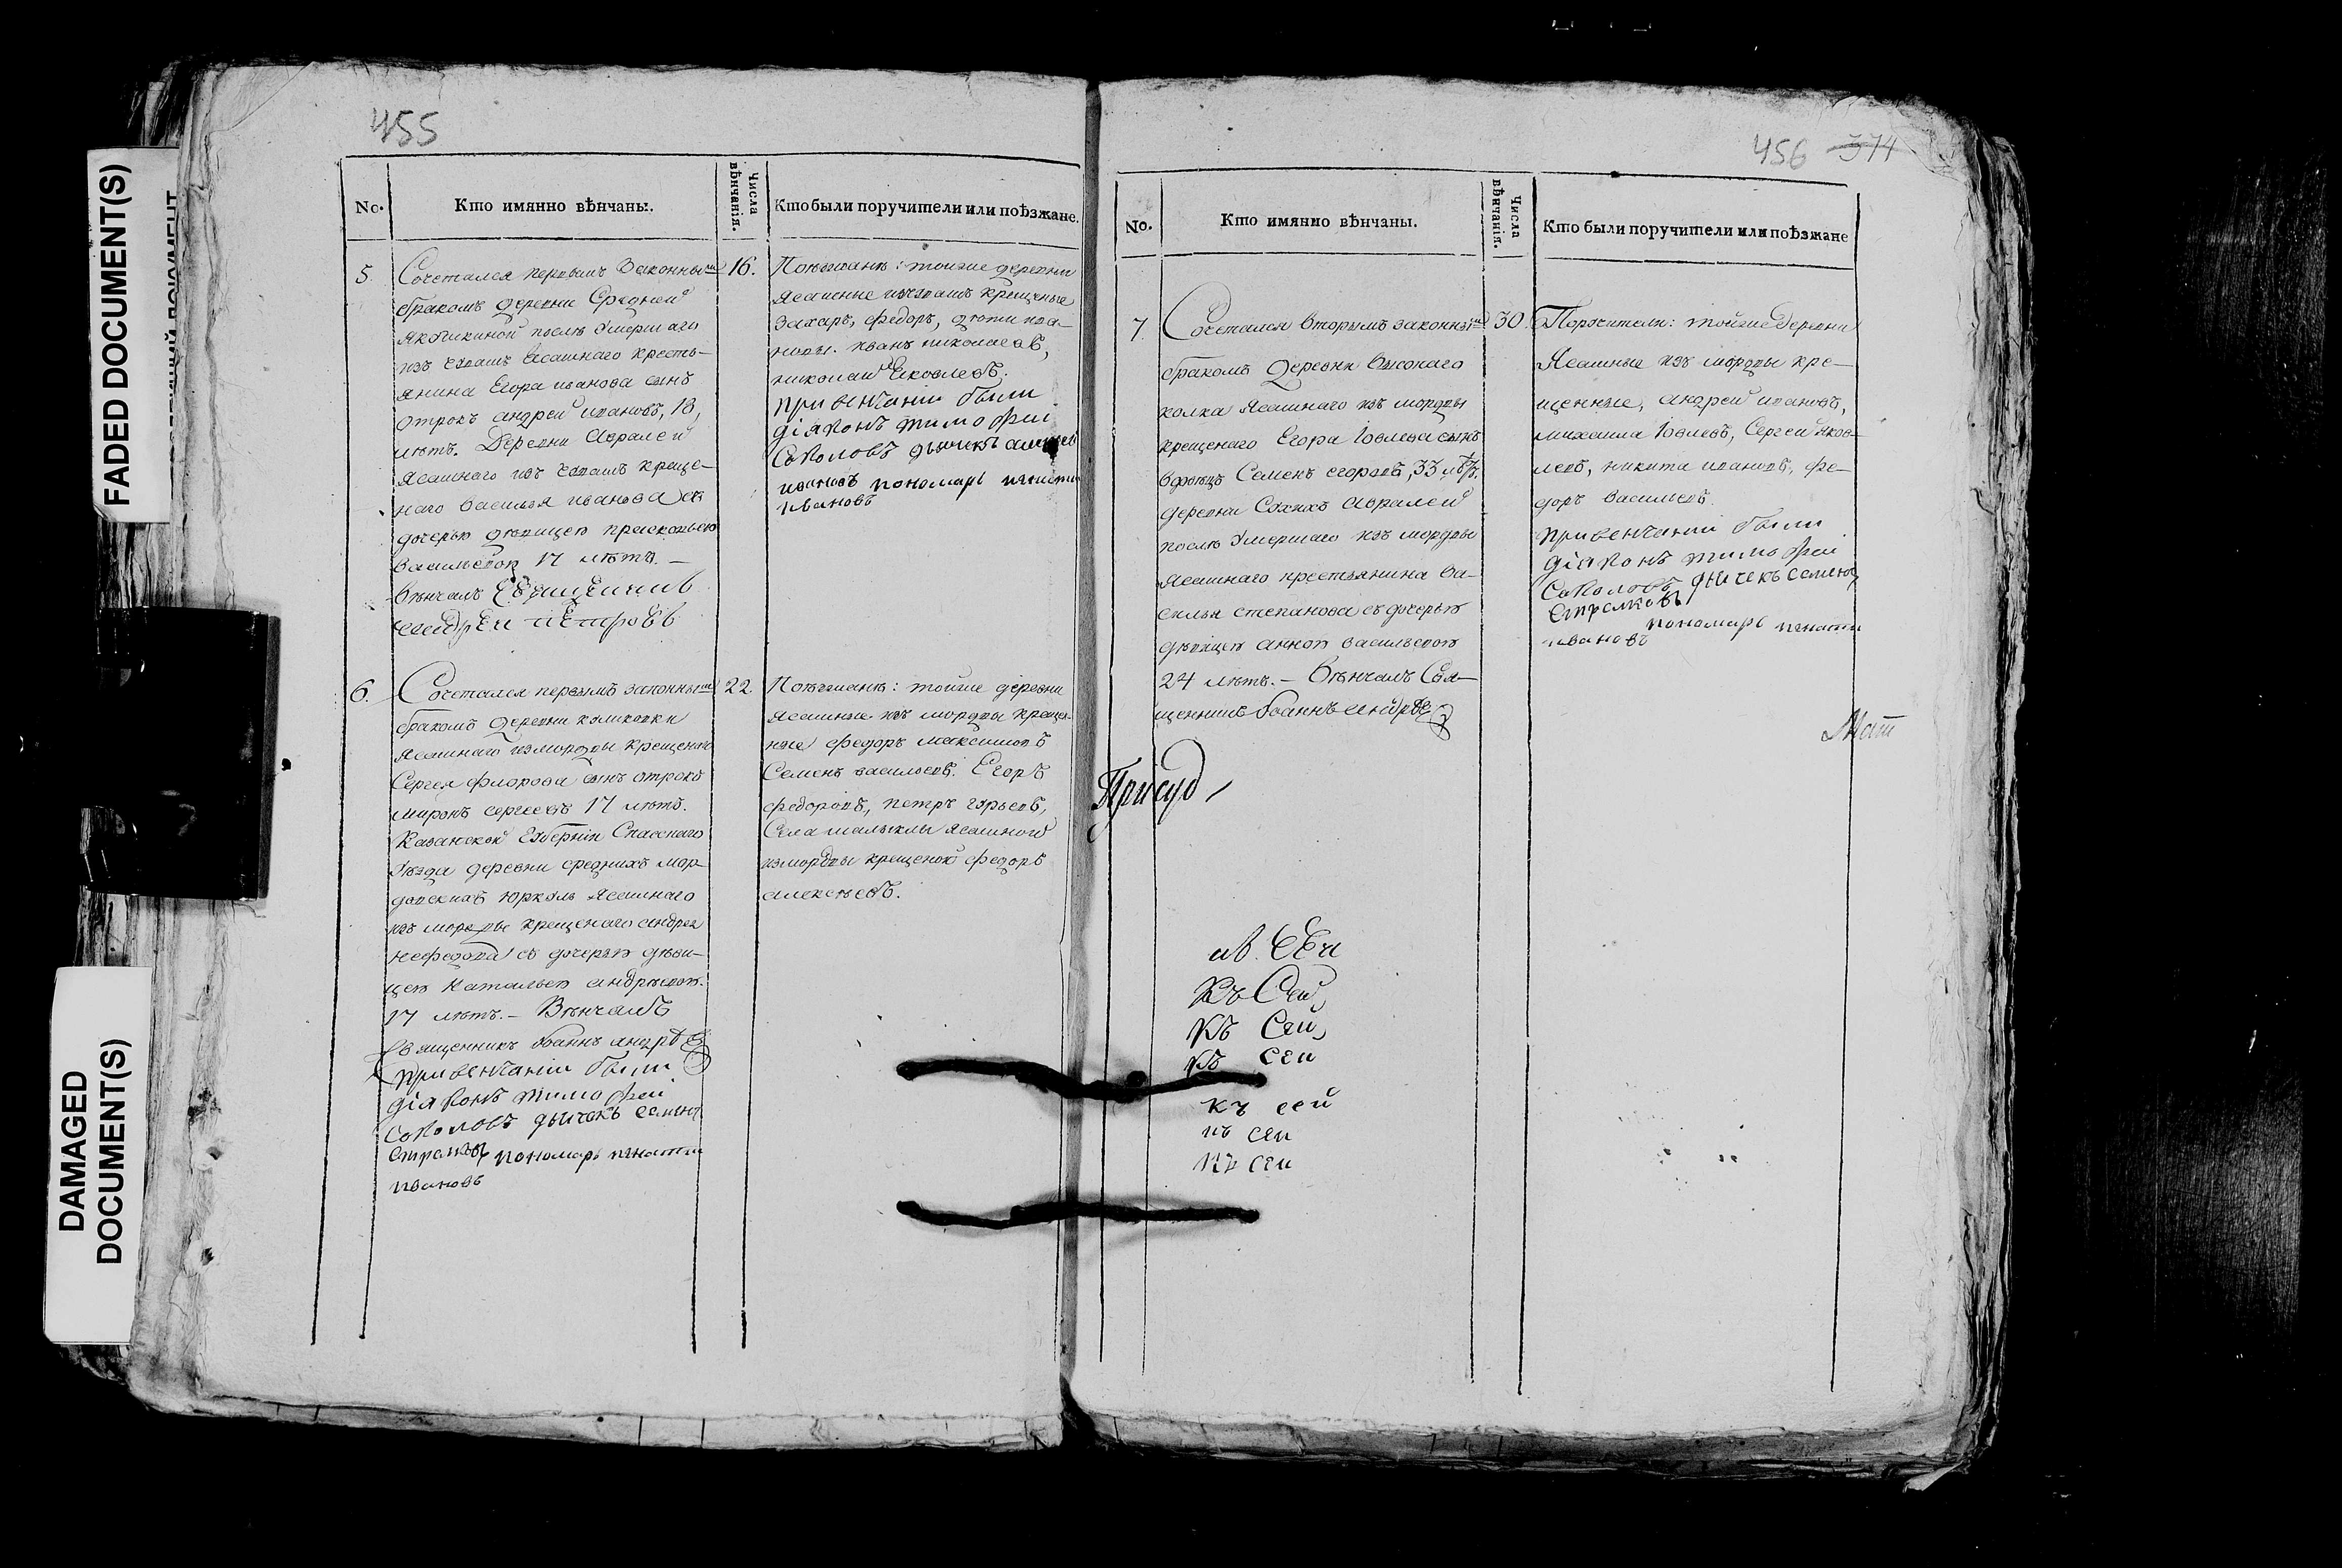 455
No.
Кто имянно вѣнчаны.
Числа вѣнчанія.
Кто были поручители или поѣзжане.
5.
Сочетался первымъ законнымъ
бракомъ деревни Средней
Якушкиной послѣ умершаго
изъ чувашъ ясашнаго кресть-
янина Егора иванова сынъ
отрокъ андрей ивановъ, 18,
лѣтъ. Деревни Авралей
ясашнаго изъ чувашъ креще-
наго василья иванова съ
дочерью дѣвицею прасковьею
васильевой 17 лѣтъ. —
вѣнчалъ Священникъ
андрей петровъ
16.
Поѣзжанѣ: тойже деревни
ясашные изчувашъ крещеные
захаръ, федоръ, дѣти ива-
новы. иванъ николаевъ,
николай Яковлевъ.
при венчаніи были
діяконъ тимофей
Соколовъ дьячекъ
ивановъ пономарь игнати
ивановъ
6.
Сочетался первымъ законнымъ
бракомъ деревни
ясашнаго измордвы крещенаго
Сергея флорова сынъ отрокъ
миронъ сергеевъ 17 лѣтъ.
Казанской Губерніи Спасскаго
уѣзда деревни среднихъ мор-
довскихъ юркуль ясашнаго
изъ мордвы крещенаго андрея
нефедова съ дочерью дѣви-
цею натальею андрѣевой.
17 лѣтъ. — Вѣнчалъ
Священникъ Іоаннъ андрѣевъ
при венчаніи были
діяконъ тимофей
Соколовъ дьячекъ семенъ
Стралковъ пономарь игнати
ивановъ
22.
Поѣзжанѣ: тойже деревни
ясашные изъ мордвы креще-
ные федоръ максимовъ
Семенъ васильевъ. Егоръ
федоровъ, петръ гурьевъ,
Села малыклы ясашной
измордвы крещеной федоръ
алексѣевъ.
456 374
No.
Кто имянно вѣнчаны.
Числа вѣнчанія.
Кто были поручители или поѣзжане
7.
Сочетался вторымъ законнымъ
бракомъ Деревни высокаго
колка ясашнаго изъ мордвы
крещенаго Егора Іовлева сынъ
вдовецъ Семенъ егоровъ, 33 лѣтъ.
деревни Сухихъ авралей
послѣ умершаго изъ мордвы
ясашнаго крестьянина ва-
силья степанова съ дочерью
дѣвицею анной васильевой
24 лѣтъ. — Вѣнчалъ Свя-
щенникъ Іоаннъ андрѣевъ
30.
Поручители: тойже Деревни
Ясашные изъ мордвы кре-
щенные, андрей ивановъ,
михаила Іовлевъ, Сергей яков-
левъ, никита ивановъ, фе-
доръ васильевъ.
при венчаніи были
діяконъ тимофей
Соколовъ дьячекъ семенъ
Стралковъ
пономарь игнати
ивановъ
Присуд
къ Сей
къ Сей
къ сей
къ сей
къ сей
къ сей
FADED DOCUMENT(S)
DAMAGED
DOCUMENT(S)